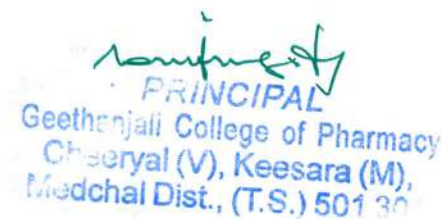 PRINCIPAL
Geethanjali College of Pharmacy
Cheeryal (V), Keesara (M),
Medchal Dist., (T.S.) 501 30